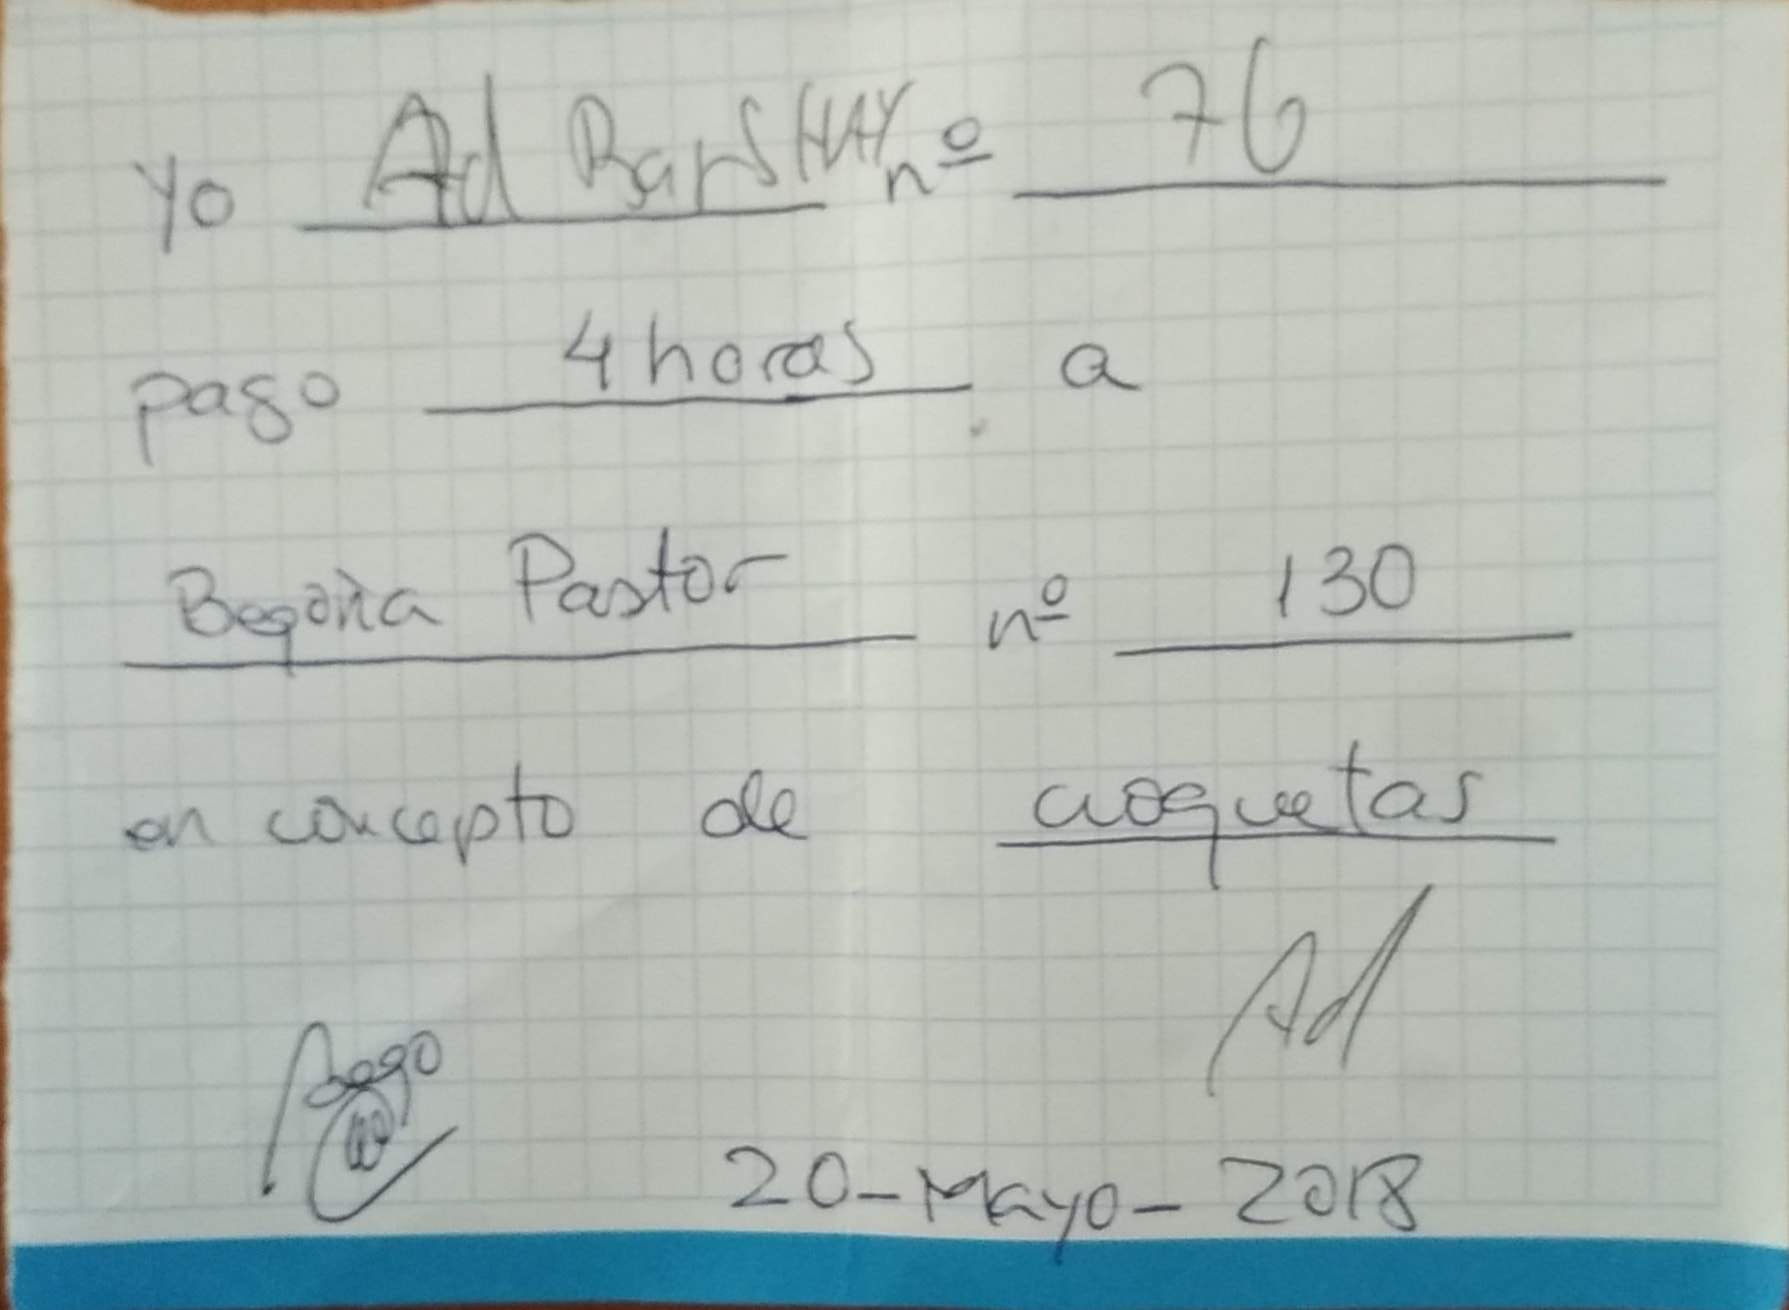 Yo Ad BarSHAY nº 76
pago 4 horas a
Begoña Pastor nº 130
en concepto de croquetas
Ad
Bego
20-Mayo-2018